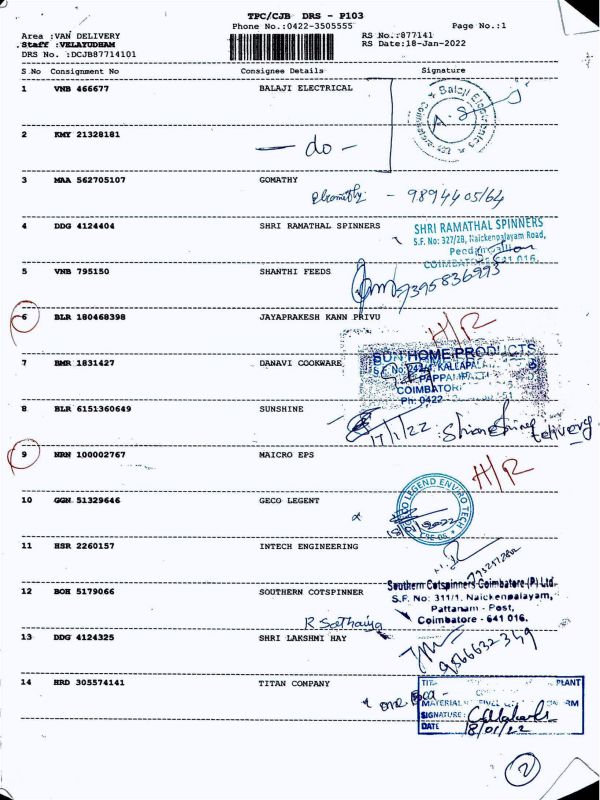 TPC/CJB DRS - P103
Phone No.:0422-3505555 Page No.:1
Area :VAN DELIVERY RS No.:877141
Staff :VELAYUDHAM RS Date:18-Jan-2022
DRS No. :DCJB87714101
S No Consignment No Consignee Details Signature
1 VNB 466677 BALAJI ELECTRICAL
Balaji Electronics
2 KMY 21328181
- do -
3 MAA 562705107 GOMATHY
- 9894405164
4 DDG 4124404 SHRI RAMATHAL SPINNERS
SHRI RAMATHAL SPINNERS
S.F. No: 327/2B, Naickenpalayam Road,
COIMBATORE 641 016.
5 VNB 795150 SHANTHI FEEDS
9395836993
6 BLR 180468398 JAYAPRAKESH KANN PRIVU
H/R
7 BMR 1831427 DANAVI COOKWARE
SUN HOME PRODUCTS
COIMBATOR
Ph: 0422
8 BLR 6151360649 SUNSHINE
17/1/22
9 NRN 100002767 MAICRO EPS
H/R
10 GGN 51329646 GECO LEGENT
LEGEND ENVIRO TECH
11 HSR 2260157 INTECH ENGINEERING
12 BOH 5179066 SOUTHERN COTSPINNER
Southern Cotspinners Coimbatore (P) Ltd.
S.F. No: 311/1, Naickenpalayam,
Pattanam - Post,
Coimbatore - 641 016.
R Sathaiya
13 DDG 4124325 SHRI LAKSHMI HAY
9566632349
14 HRD 305574141 TITAN COMPANY
PLANT
MATERIAL
SIGNATURE:
DATE 18/01/22
2